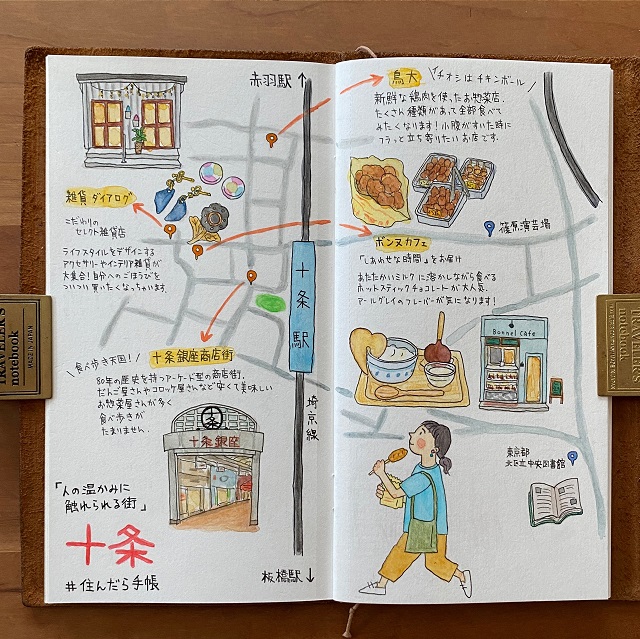 赤羽駅↑
雑貨 ダイアログ
こだわりの
セレクト雑貨店
ライフスタイルをデザインする
アクセサリーやインテリア雑貨が
大集合！自分へのごほうびを
ついつい買いたくなっちゃいます。
食べ歩き天国！
十条銀座商店街
80年の歴史を持つアーケード型の商店街。
だんご屋さんやコロッケ屋さんなど安くて美味しい
お惣菜屋さんが多く
食べ歩きが
たまりません。
十条銀座
「人の温かみに
触れられる街」
十条
#住んだら手帳
十条駅
埼京線
板橋駅↓
鳥大
イチオシは チキンボール
新鮮な鶏肉を使ったお惣菜店。
たくさん種類があって全部食べて
みたくなります！小腹がすいた時に
フラッと立ち寄りたいお店です。
篠原演芸場
ボンヌカフェ
「しあわせな時間」をお届け
あたたかいミルクに溶かしながら食べる
ホットスティックチョコレートが大人気。
アールグレイのフレーバーが気になります！
Bonnel Cafe
東京都
北区立中央図書館
TRAVELER'S
notebook